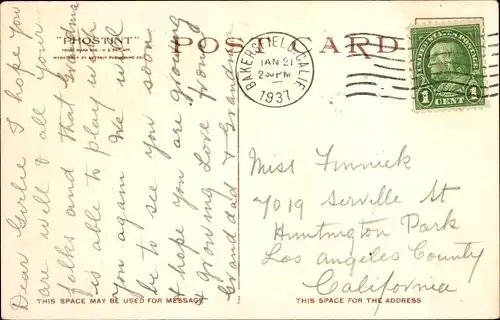 "PHOSTINT"
TRADE MARK REG. U.S. PAT. OFF.
MADE ONLY BY DETROIT PUBLISHING CO.
POST CARD
BAKERSFIELD, CALIF.
JAN 21
2 PM
1937
UNITED STATES POSTAGE
1 CENT 1
Dear Girlie I hope you
are well & all your
folks and that Grandma
is able to play with
you again We will
be to see you soon
& hope you are growing
& growing Love from
Granddad & Grandma
Miss Finnick
7019 Serville St
Huntington Park
Los Angeles County
California
THIS SPACE MAY BE USED FOR MESSAGE
THIS SPACE FOR THE ADDRESS